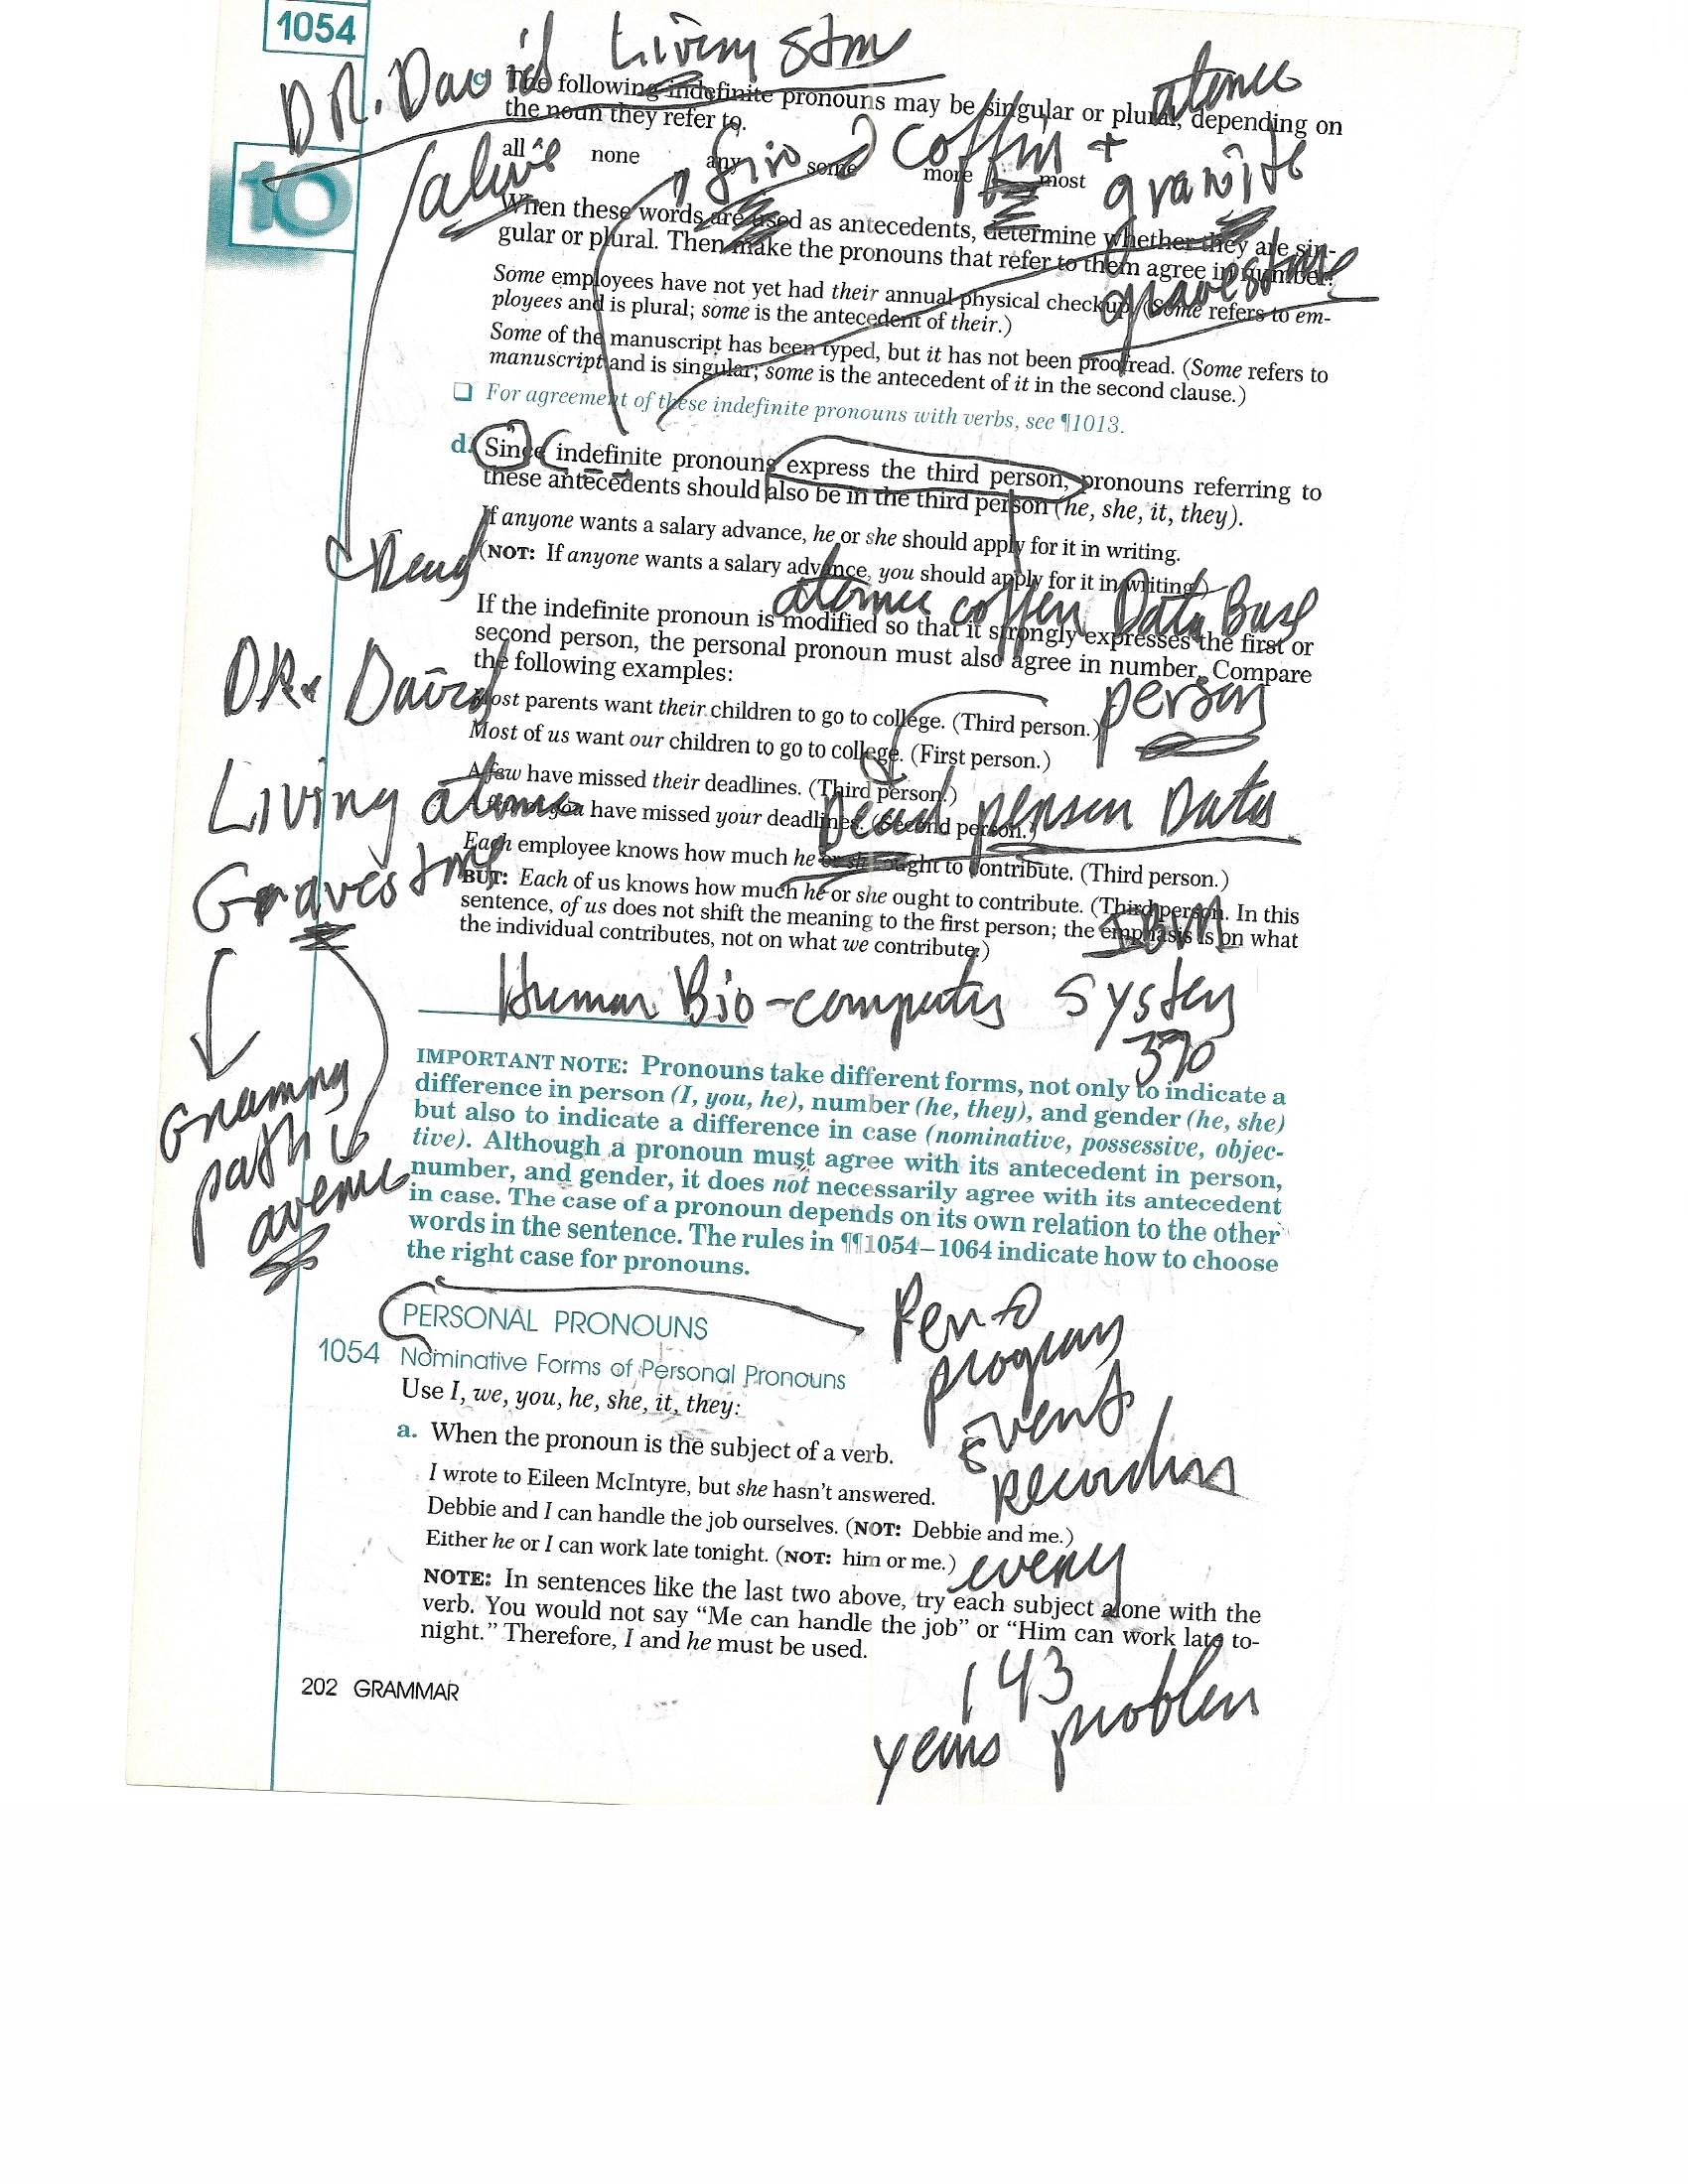 1054
DR. David Living Stone
c. The following indefinite pronouns may be singular or plural, depending on
the noun they refer to.
all none any some more most
alive
find coffin +
granite
gravestone
10
When these words are used as antecedents, determine whether they are sin-
gular or plural. Then make the pronouns that refer to them agree in number.
Some employees have not yet had their annual physical checkup. (Some refers to em-
ployees and is plural; some is the antecedent of their.)
Some of the manuscript has been typed, but it has not been proofread. (Some refers to
manuscript and is singular; some is the antecedent of it in the second clause.)
❑ For agreement of these indefinite pronouns with verbs, see ¶1013.
d. Since indefinite pronouns express the third person, pronouns referring to
these antecedents should also be in the third person (he, she, it, they).
If anyone wants a salary advance, he or she should apply for it in writing.
(NOT: If anyone wants a salary advance, you should apply for it in writing.)
coffin Data Base
If the indefinite pronoun is modified so that it strongly expresses the first or
second person, the personal pronoun must also agree in number. Compare
the following examples:
DR. David
person
Most parents want their children to go to college. (Third person.)
Most of us want our children to go to college. (First person.)
Living
A few have missed their deadlines. (Third person.)
A few of you have missed your deadlines. (Second person.)
Dead person Data
Each employee knows how much he or she ought to contribute. (Third person.)
Gravestone
BUT: Each of us knows how much he or she ought to contribute. (Third person. In this
sentence, of us does not shift the meaning to the first person; the emphasis is on what
the individual contributes, not on what we contribute.)
IBM
Human Bio-computer System
370
path
avenue
IMPORTANT NOTE: Pronouns take different forms, not only to indicate a
difference in person (I, you, he), number (he, they), and gender (he, she)
but also to indicate a difference in case (nominative, possessive, objec-
tive). Although a pronoun must agree with its antecedent in person,
number, and gender, it does not necessarily agree with its antecedent
in case. The case of a pronoun depends on its own relation to the other
words in the sentence. The rules in ¶¶1054–1064 indicate how to choose
the right case for pronouns.
PERSONAL PRONOUNS
program
Event
Recording
1054 Nominative Forms of Personal Pronouns
Use I, we, you, he, she, it, they:
a. When the pronoun is the subject of a verb.
I wrote to Eileen McIntyre, but she hasn't answered.
Debbie and I can handle the job ourselves. (NOT: Debbie and me.)
Either he or I can work late tonight. (NOT: him or me.)
every
NOTE: In sentences like the last two above, try each subject alone with the
verb. You would not say "Me can handle the job" or "Him can work late to-
night." Therefore, I and he must be used.
143
years problem
202 GRAMMAR